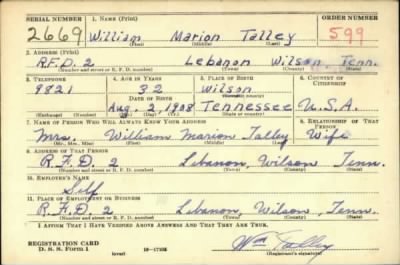 SERIAL NUMBER 1. NAME (Print) ORDER NUMBER
2669 William Marion Talley 599
(First) (Middle) (Last)
2. ADDRESS (Print)
R.F.D. 2 Lebanon Wilson Tenn.
(Number and street or R. F. D. number) (Town) (County) (State)
3. TELEPHONE 4. AGE IN YEARS 5. PLACE OF BIRTH 6. COUNTRY OF CITIZENSHIP
9821 32 Wilson
DATE OF BIRTH (Town or county)
Aug. 2, 1908 Tennessee U.S.A.
(Exchange) (Number) (Mo.) (Day) (Yr.) (State or country)
7. NAME OF PERSON WHO WILL ALWAYS KNOW YOUR ADDRESS 8. RELATIONSHIP OF THAT PERSON
Mrs. William Marion Talley Wife
(Mr., Mrs., Miss) (First) (Middle) (Last)
9. ADDRESS OF THAT PERSON
R.F.D. 2 Lebanon, Wilson, Tenn.
(Number and street or R. F. D. number) (Town) (County) (State)
10. EMPLOYER'S NAME
Self
11. PLACE OF EMPLOYMENT OR BUSINESS
R.F.D. 2 Lebanon, Wilson, Tenn.
(Number and street or R. F. D. number) (Town) (County) (State)
I AFFIRM THAT I HAVE VERIFIED ABOVE ANSWERS AND THAT THEY ARE TRUE.
REGISTRATION CARD Wm Talley
D. S. S. Form 1 (over) (Registrant's signature)